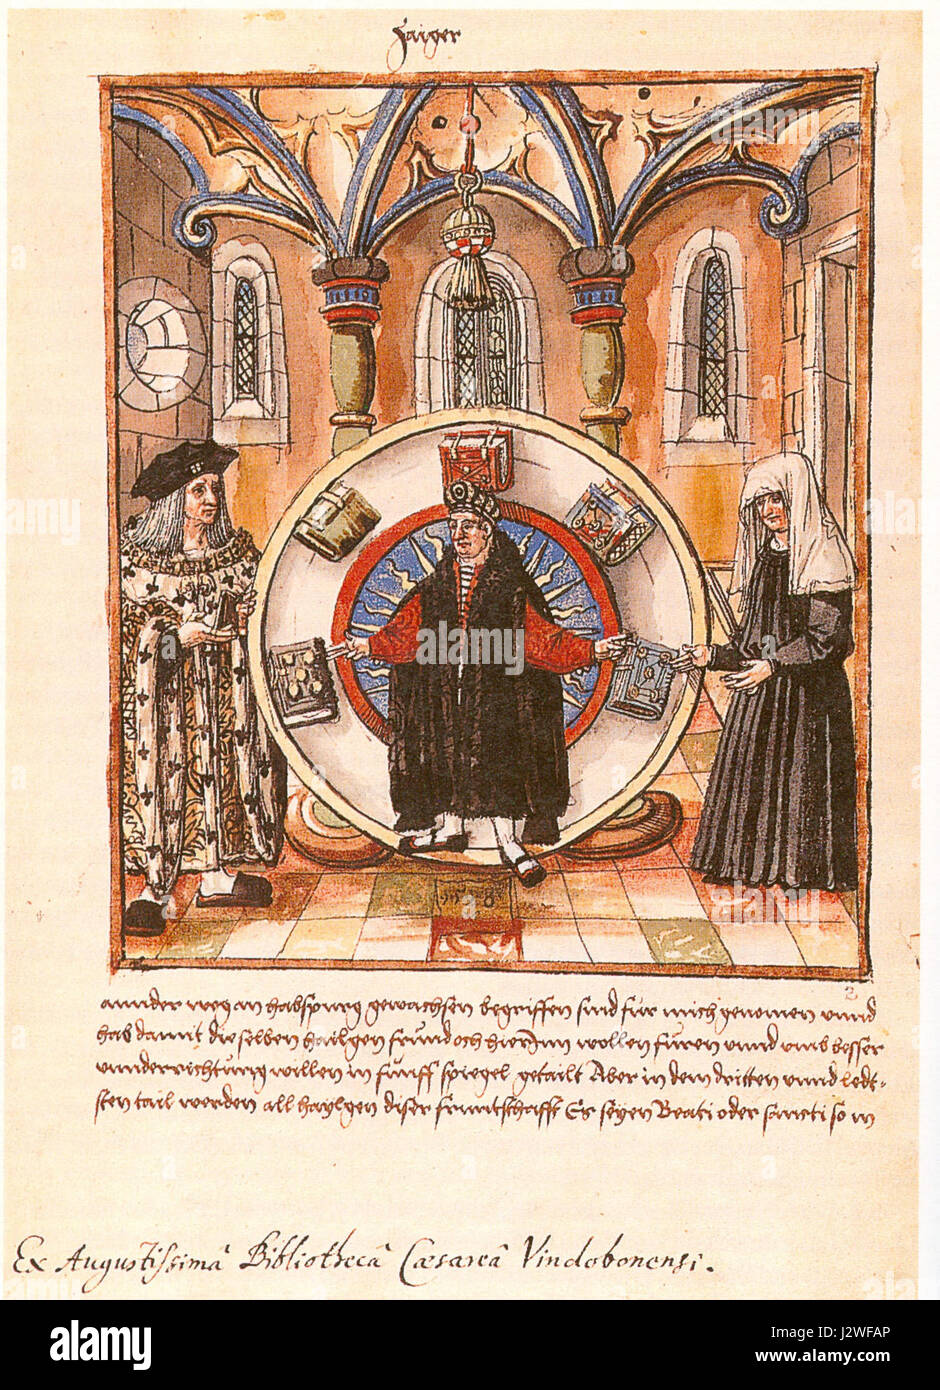 Zaiger
1518
2
annder weg an habspurg gewachsen begriffen sind für mich genomen unnd
hab damit die selben hailgen frund och hierInn wollen furen unnd umb besser
unnderrichtung willen in funff spiegel getailt Aber in dem dritten unnd ledt-
sten tail werden all haylgen diser fruntschafft Es seyen Beati oder sancti so in
Ex Augustissimâ Bibliothecâ Cæsareâ Vindobonensi.
alamy
alamy stock photo
J2WFAP
www.alamy.com